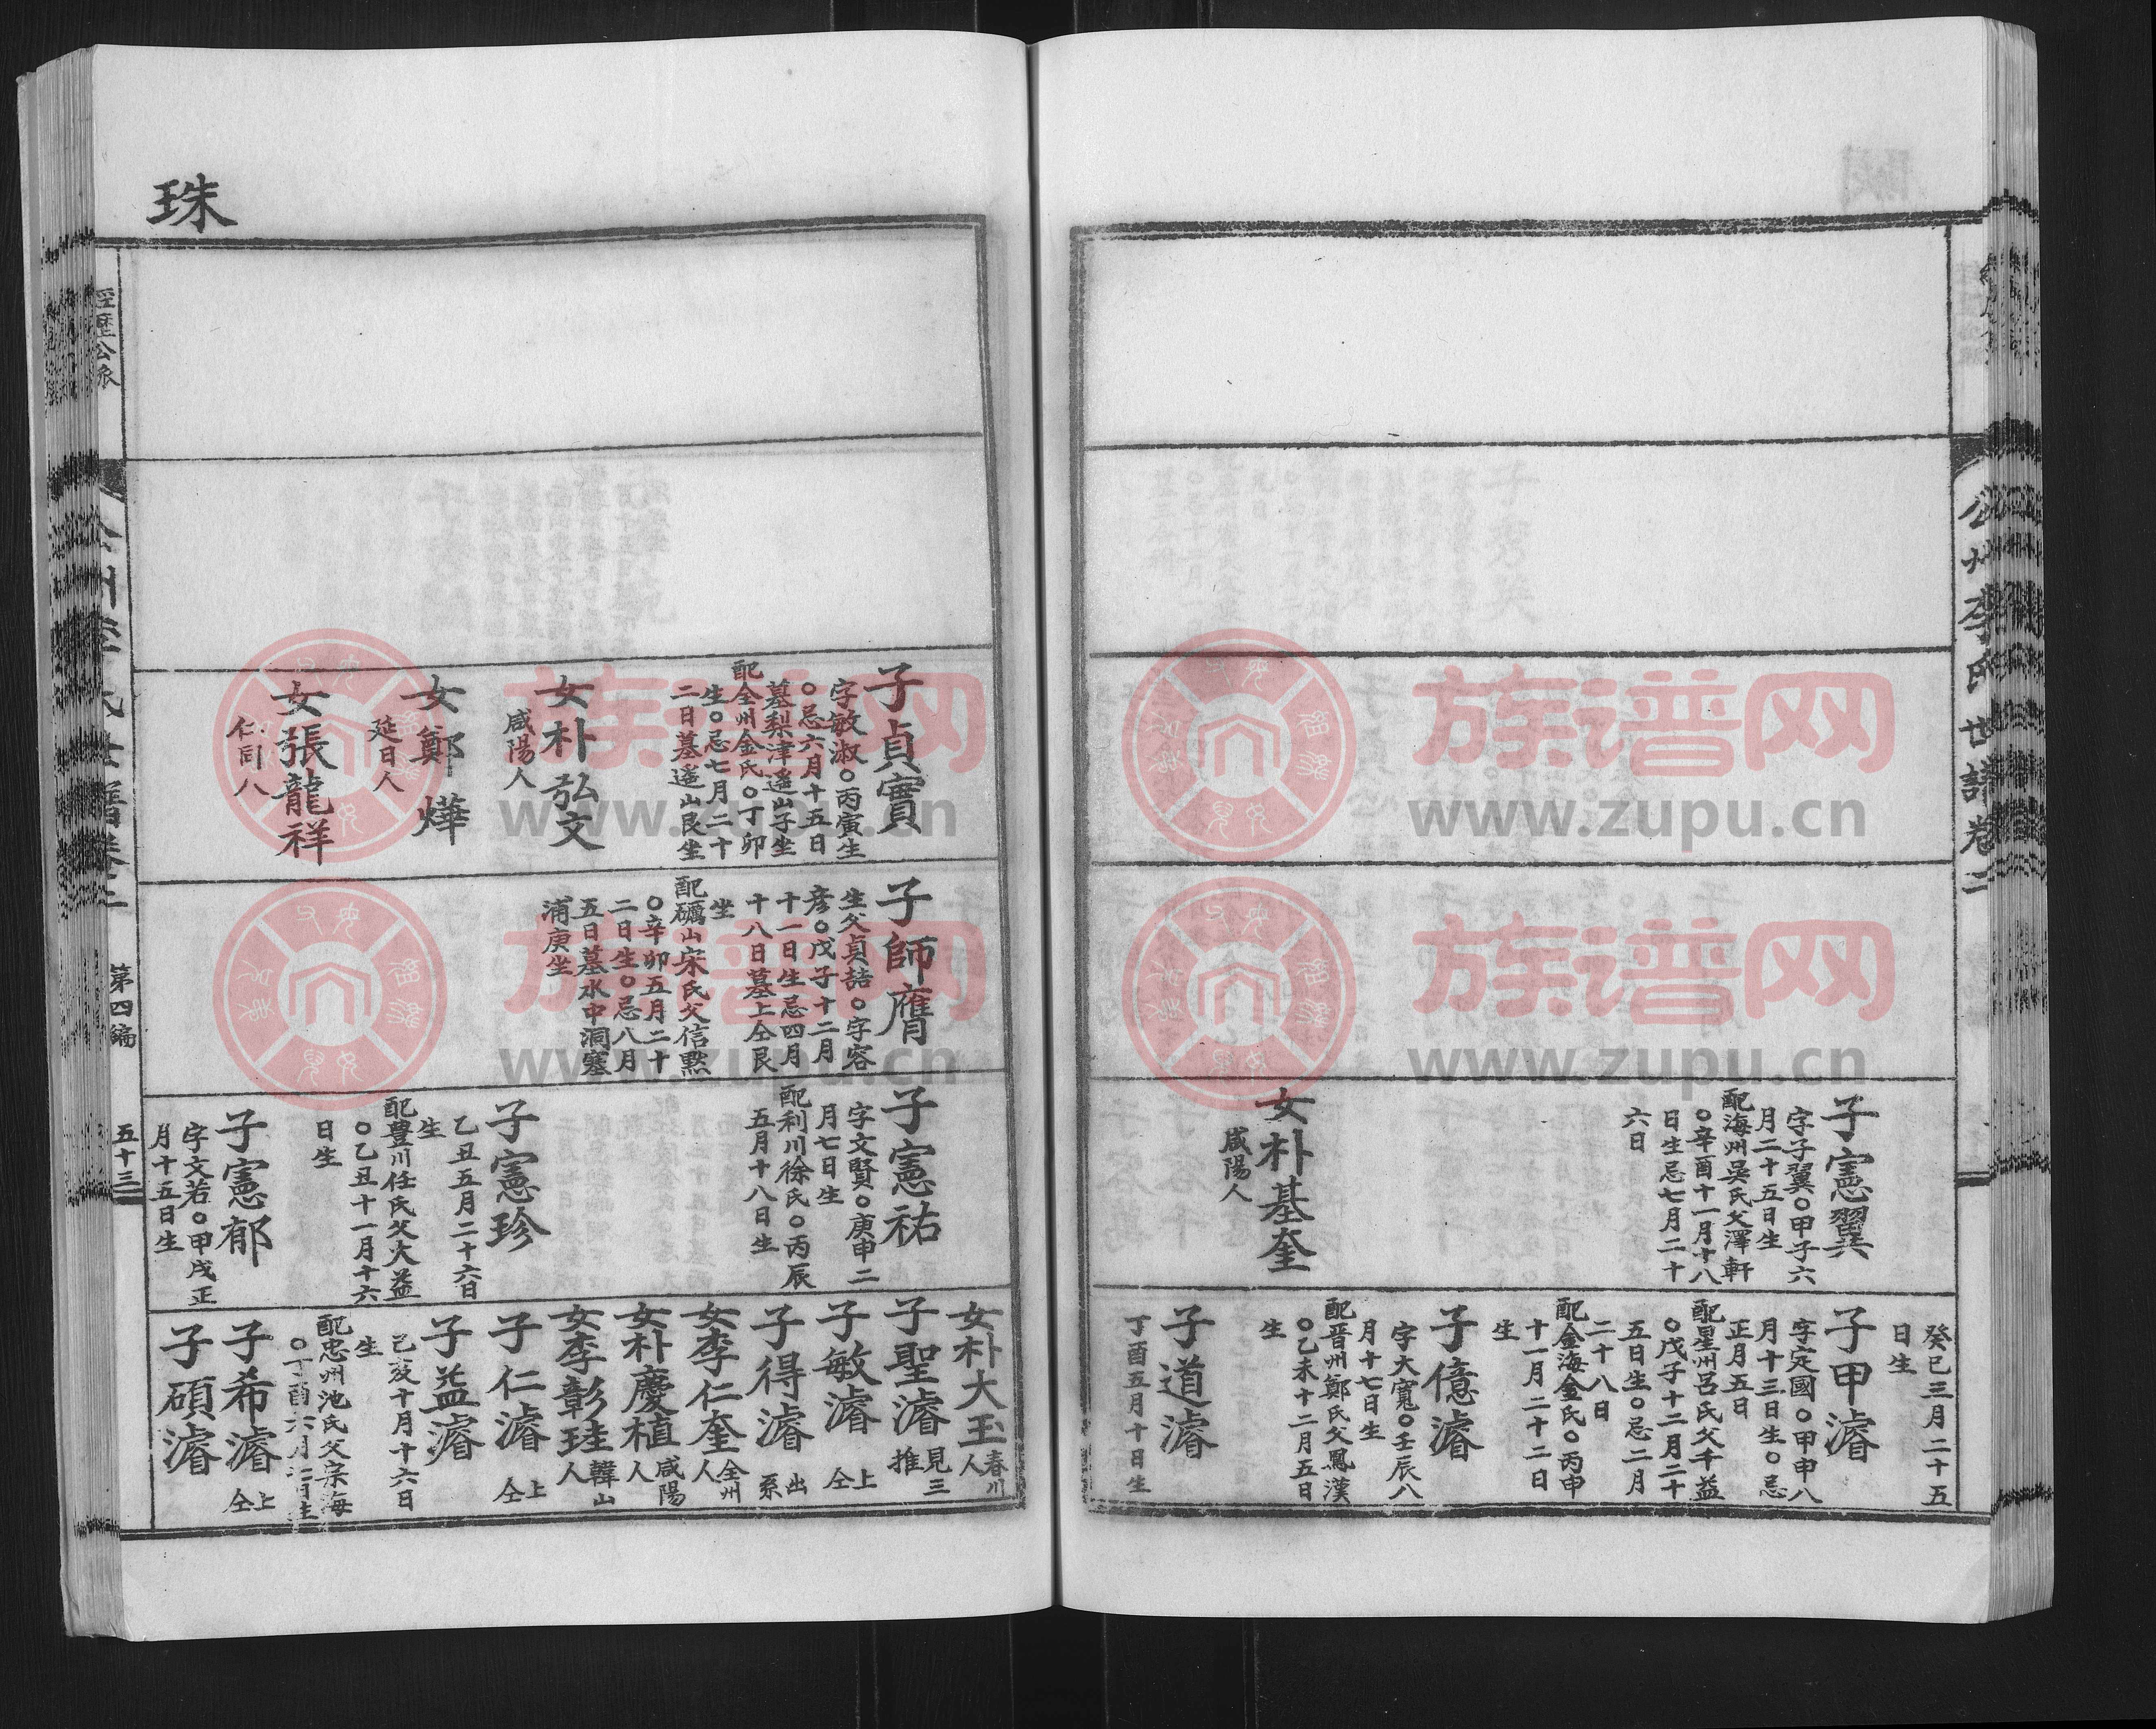 公州李氏世譜卷二
子憲翼
字子翼〇甲子六
月二十五日生
配海州吳氏父澤軒
〇辛酉十一月十八
日生忌七月二十
六日
女朴基奎
咸陽人
癸巳三月二十五
日生
子甲濬
字定國〇甲申八
月十三日生〇忌
正月五日
配星州呂氏父千益
〇戊子十二月二十
五日生〇忌二月
二十八日
配金海金氏〇丙申
十一月二十二日
生
子億濬
字大寬〇壬辰八
月十七日生
配晋州鄭氏父鳳漢
〇乙未十二月五日
生
子道濬
丁酉五月十日生
珠
子貞實
字敏淑〇丙寅生
〇忌六月十五日
墓梨津遥山子坐
配全州金氏〇丁卯
生〇忌七月二十
二日墓遥山艮坐
女朴弘文
咸陽人
女鄭燁
延日人
女張龍祥
仁同人
子師膺
生父貞喆〇字容
彦〇戊子十二月
十一日生忌四月
十八日墓上仝艮
坐
配礪山宋氏父信黙
〇辛卯五月二十
二日生〇忌八月
五日墓水中洞寒
浦庚坐
子憲祐
字文賢〇庚申二
月七日生
配利川徐氏〇丙辰
五月十八日生
子憲珍
乙丑五月二十六日
生
配豊川任氏父大益
〇乙丑十一月十六
日生
子憲郁
字文若〇甲戌正
月十五日生
女朴大玉 春川人
子聖濬 見三推
子敏濬 上仝
子得濬 出系
女李仁奎 全州人
女朴慶植 咸陽人
女李彰珪 韓山人
子仁濬 上仝
子益濬
己亥十月十六日
生
配忠州池氏父宗海
子希濬 上仝
子碩濬
經歷公派
公州李氏世譜卷二
第四編
五十三
族谱网
www.zupu.cn
族谱网
www.zupu.cn
族谱网
www.zupu.cn
族谱网
www.zupu.cn